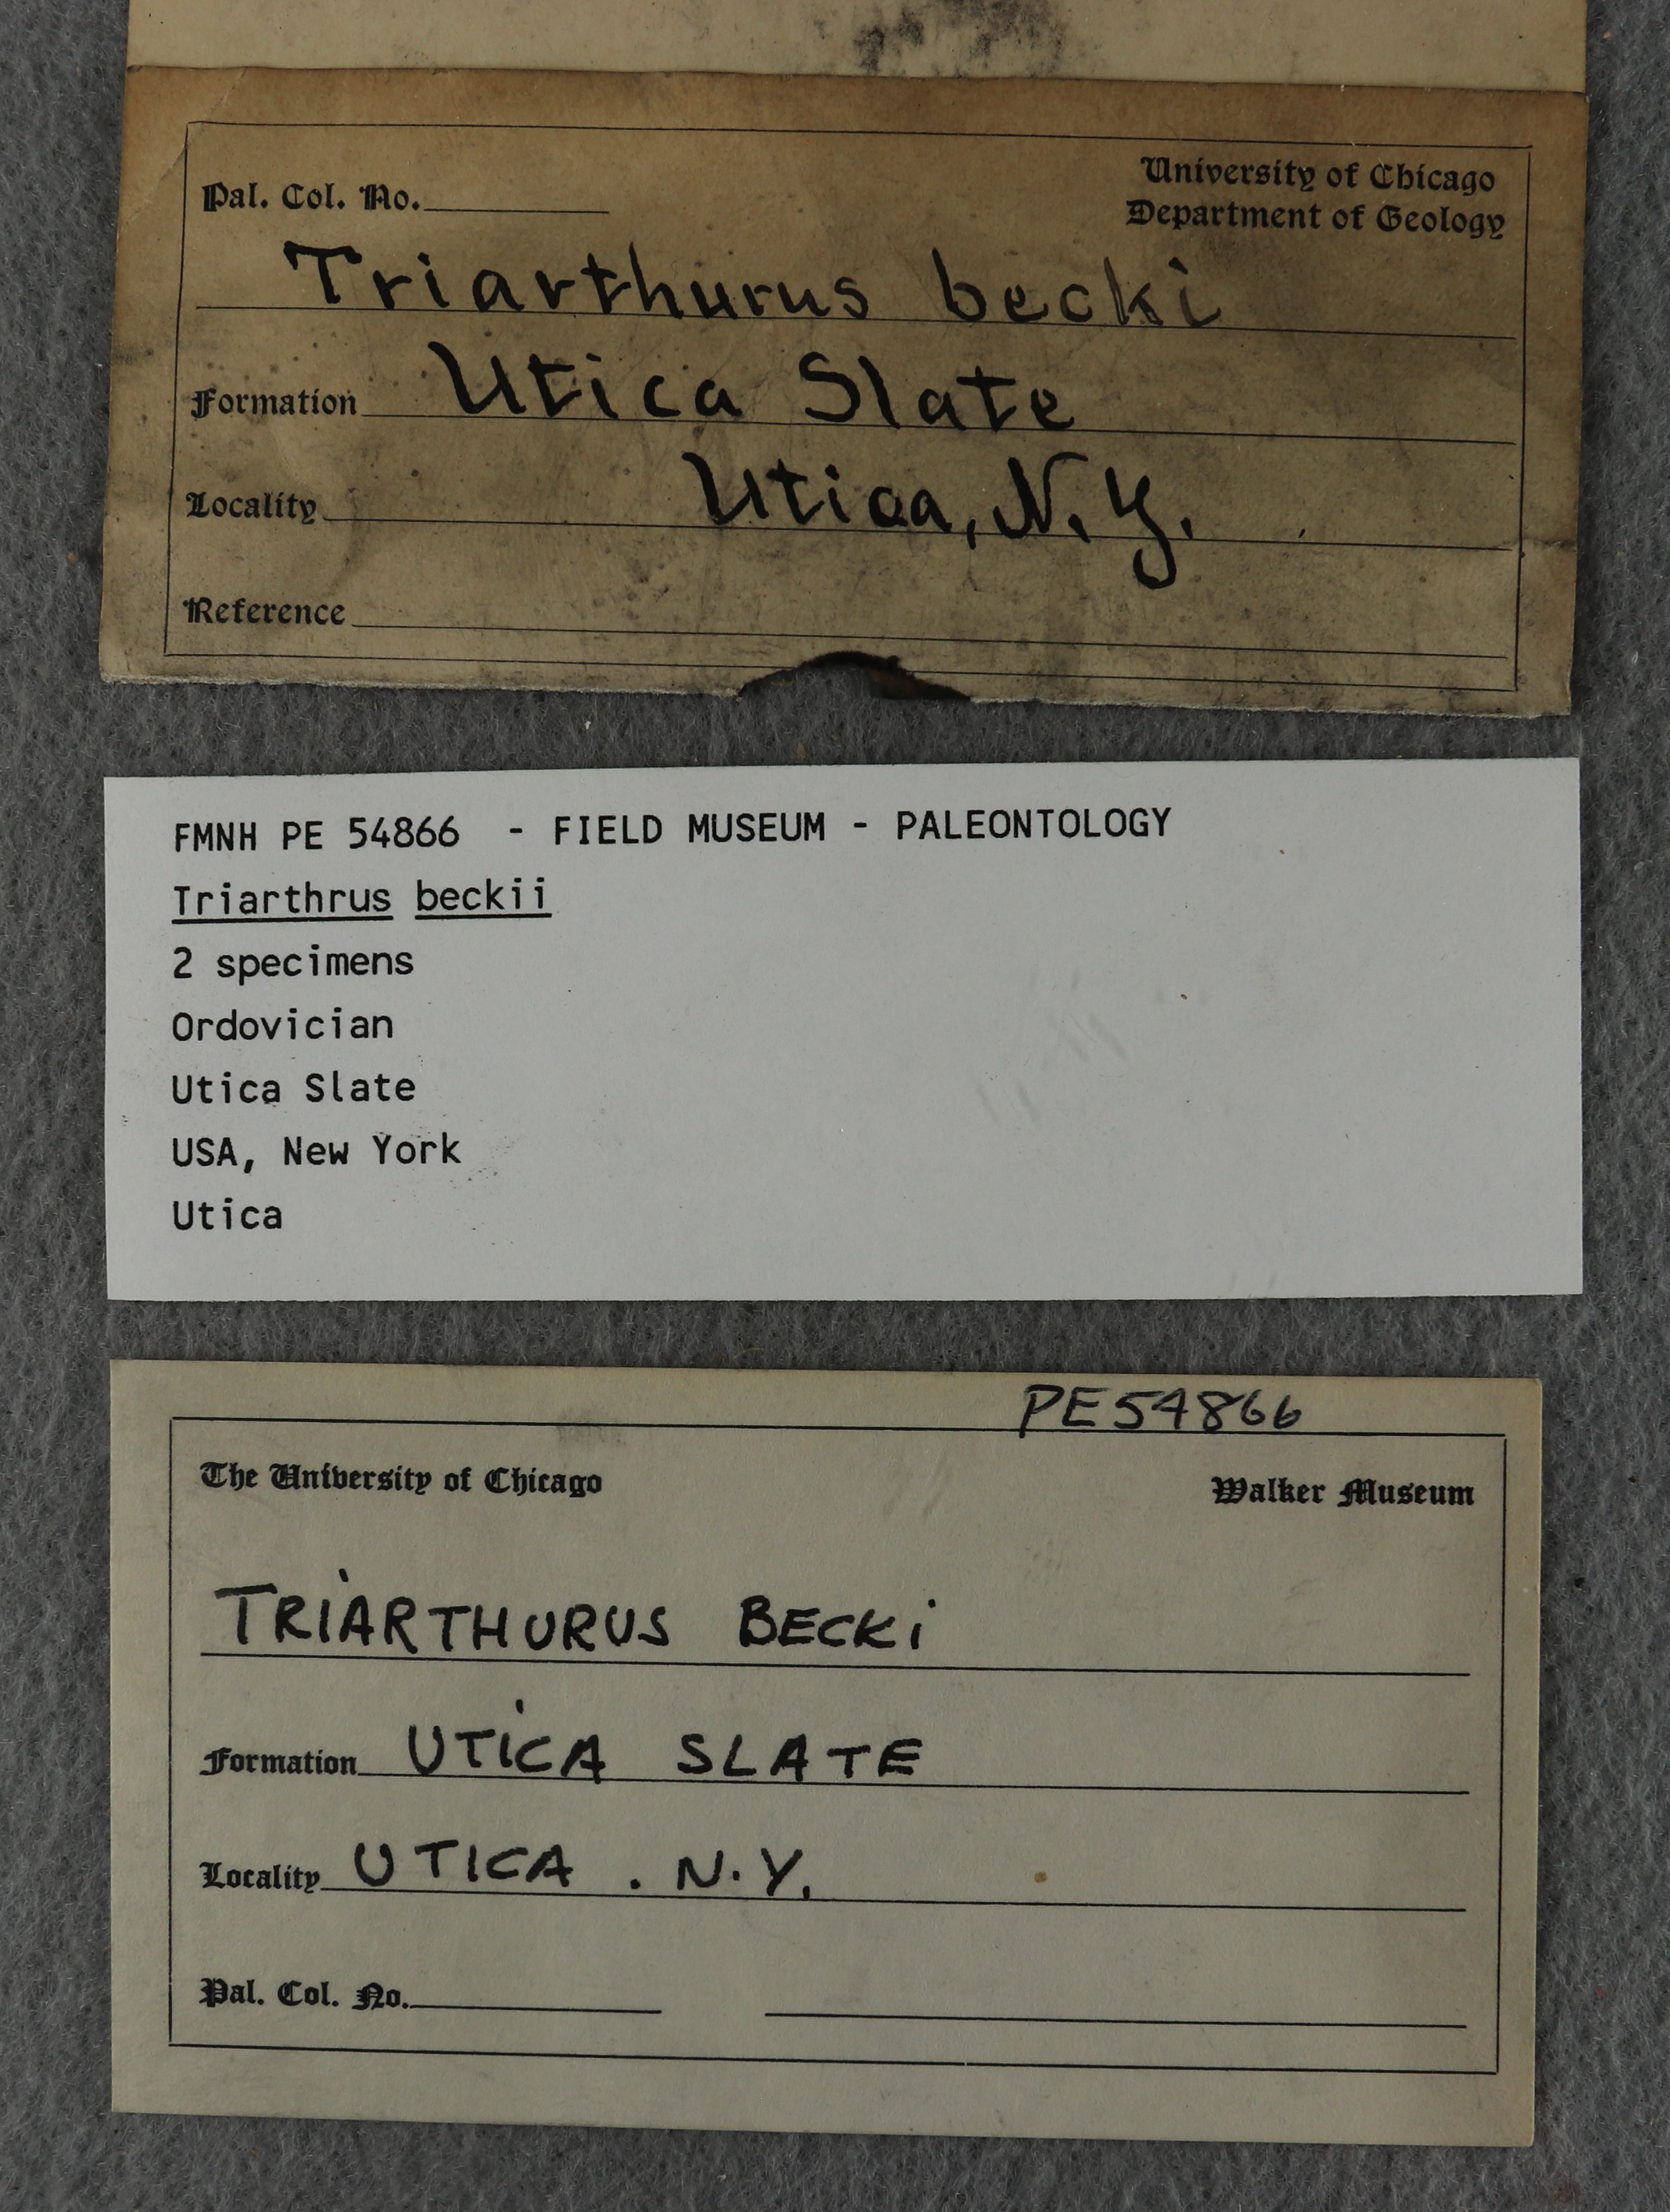 Pal. Col. No.
University of Chicago
Department of Geology
Triarthurus becki
Formation Utica Slate
Locality Utica, N.Y.
Reference
FMNH PE 54866 - FIELD MUSEUM - PALEONTOLOGY
Triarthrus beckii
2 specimens
Ordovician
Utica Slate
USA, New York
Utica
PE54866
The University of Chicago
Walker Museum
TRIARTHURUS BECKi
Formation UTiCA SLATE
Locality UTICA . N.Y.
Pal. Col. No.